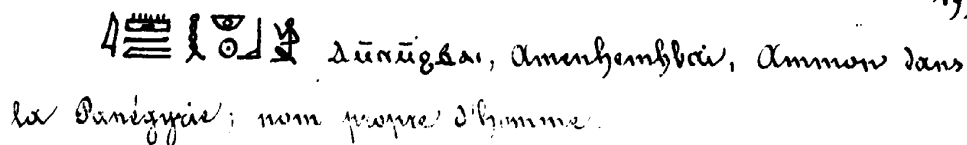 ⲁⲙ̄ⲛⲙ̄ϩⲃⲁⲓ, Amenhemhbai, Ammon dans
la Panégyrie; nom propre d'homme.